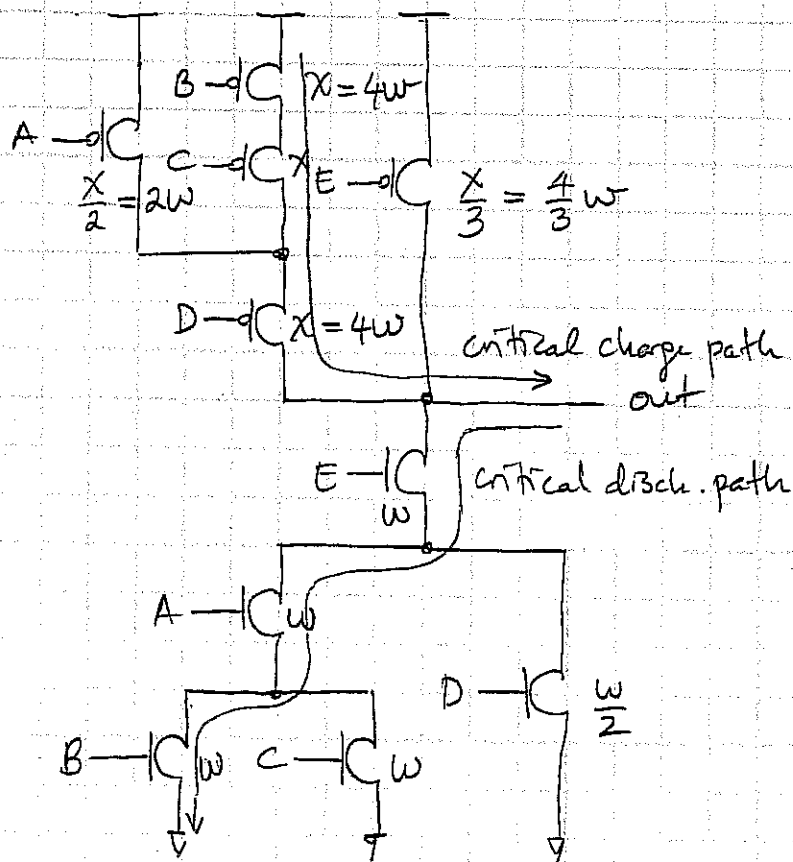 B
X = 4W
A
C
X
E
X/2 = 2W
X/3 = 4/3 W
D
X = 4W
critical charge path
out
E
W
critical disch. path
A
W
D
W/2
B
W
C
W